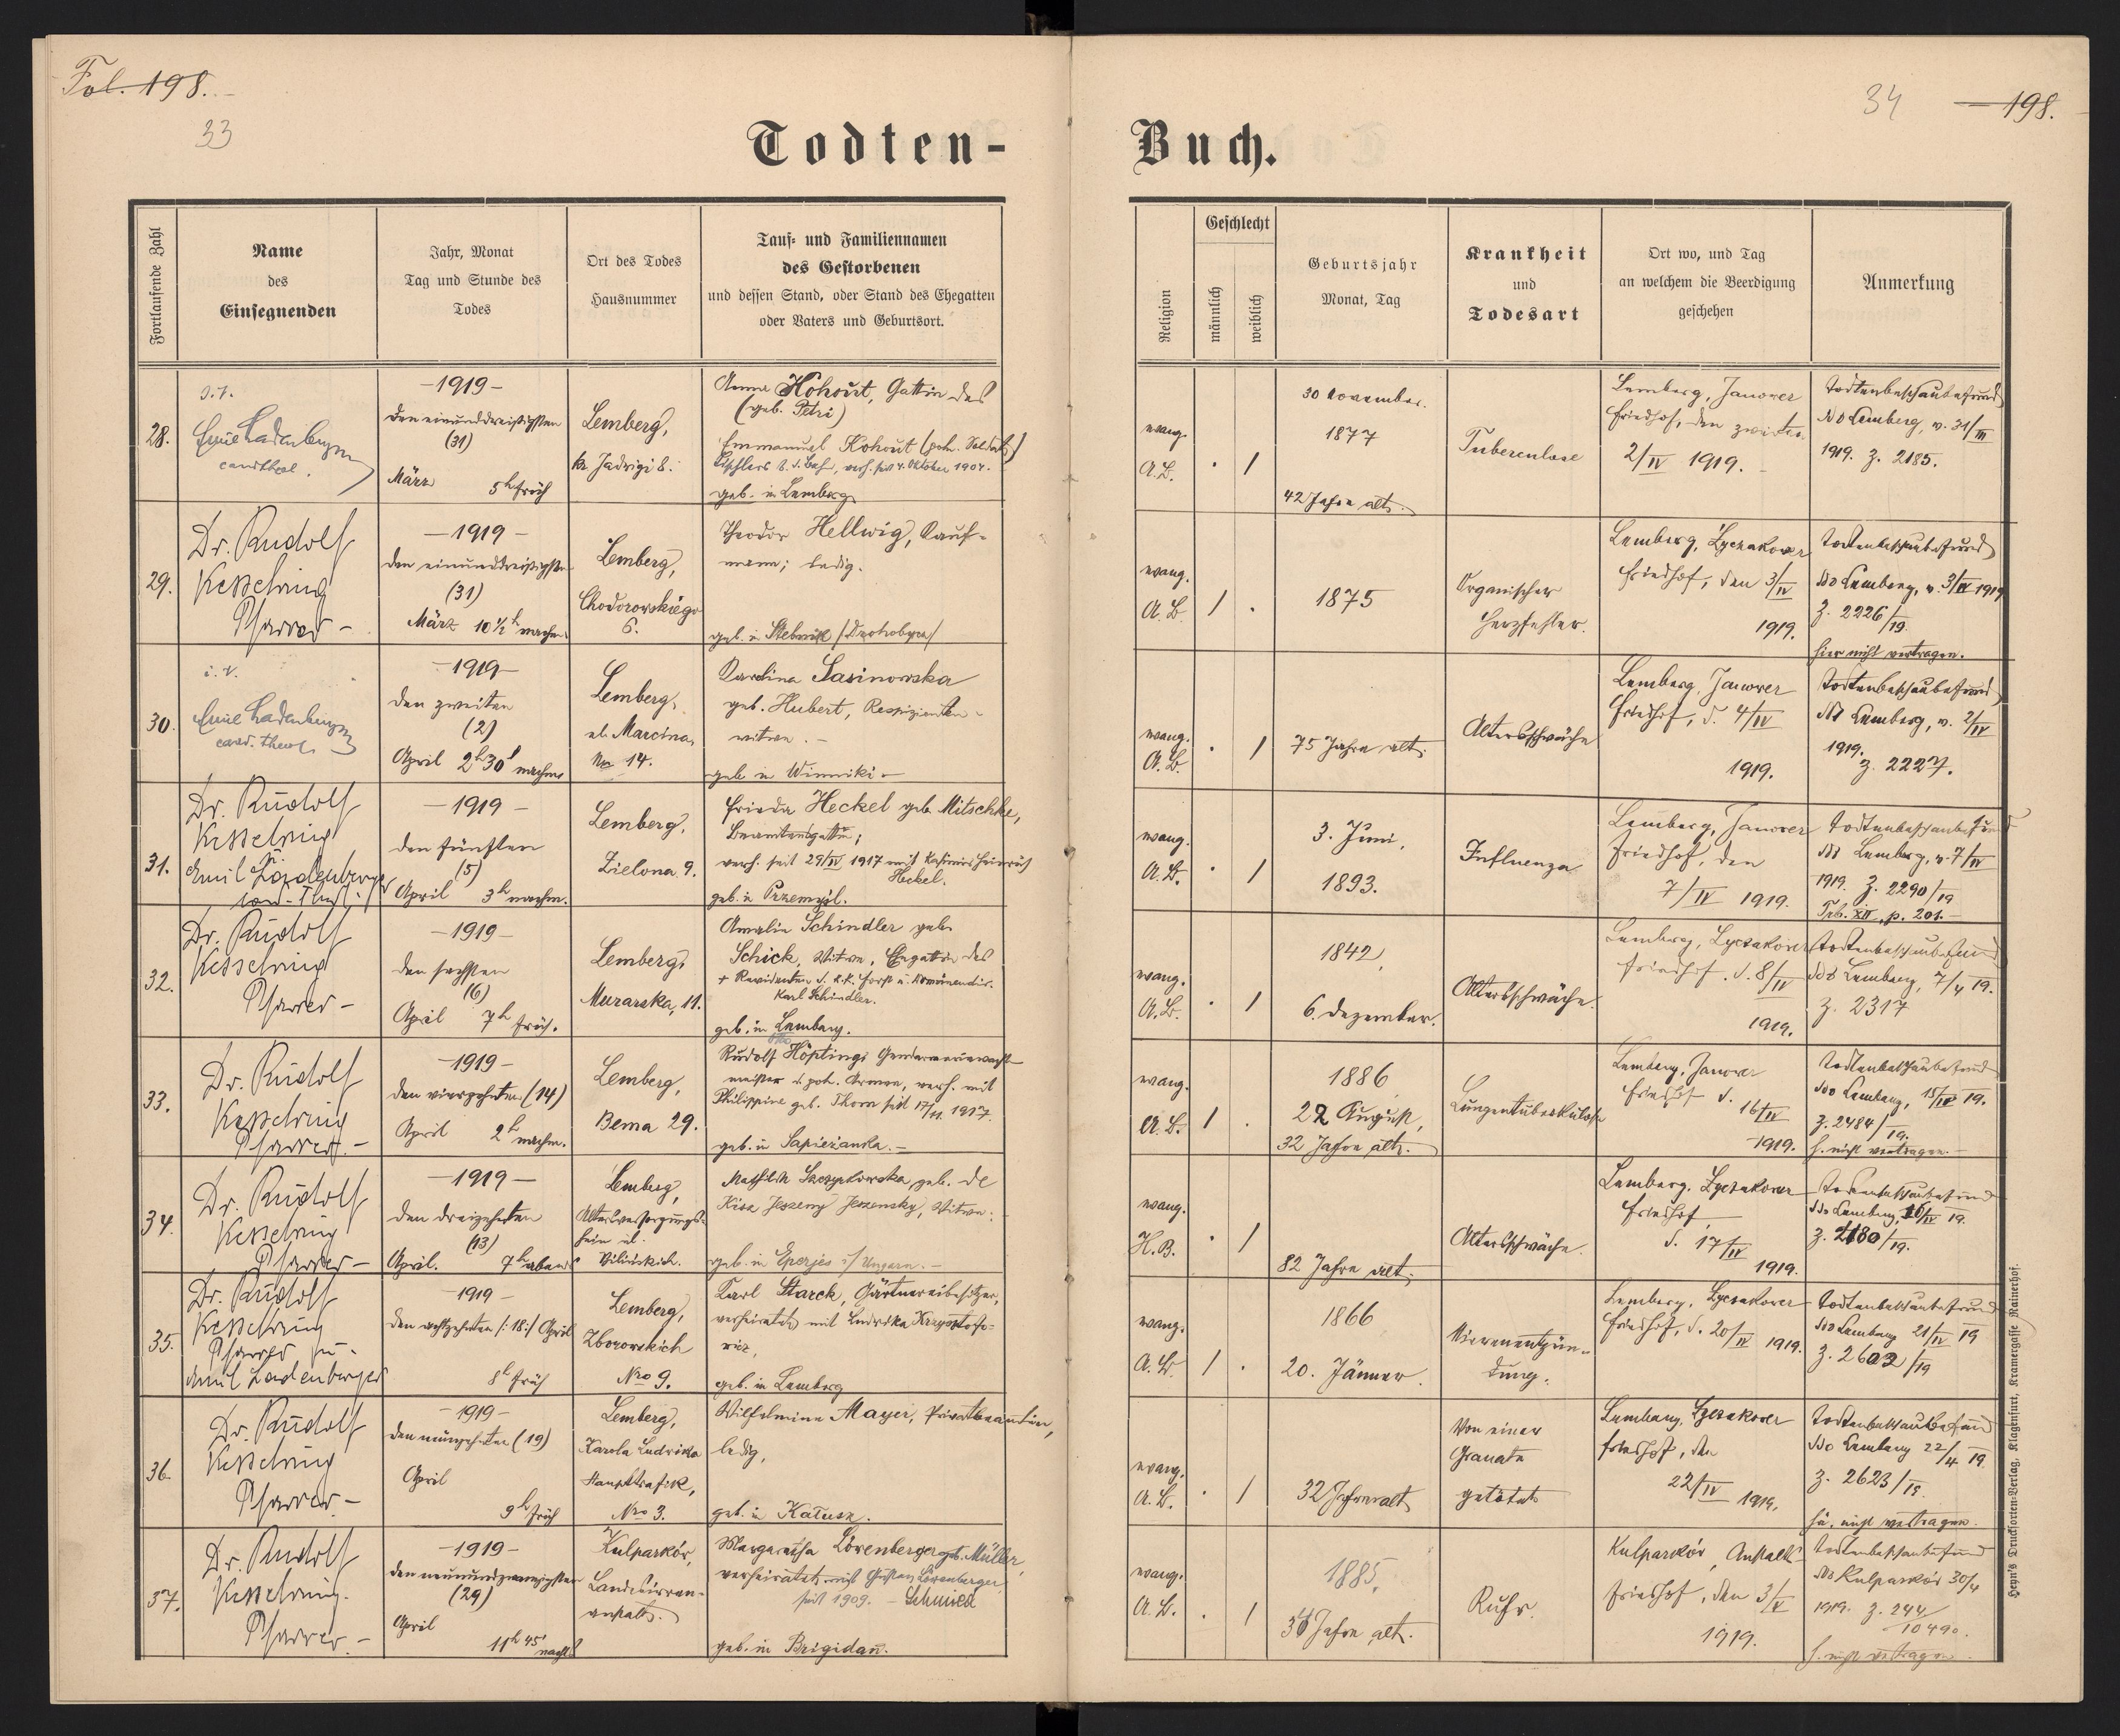 Fol. 198.
33
34
198.
Todten-
Buch.
Fortlaufende Zahl
Name
des
Einsegnenden
Jahr, Monat
Tag und Stunde des
Todes
Ort des Todes
Hausnummer
Tauf- und Familiennamen
des Gestorbenen
und dessen Stand, oder Stand des Ehegatten
oder Vaters und Geburtsort.
Religion
Geschlecht
männlich
weiblich
Geburtsjahr
Monat, Tag
Krankheit
und
Todesart
Ort wo, und Tag
an welchem die Beerdigung
geschehen
Anmerkung
28.
Emil Ladenberger
cand. theol.
-1919-
den einunddreißigsten
(31)
März 5h früh
Lemberg,
Jadwigi 8.
Anna Kohout, Gattin des
(geb. Petri)
Emmanuel Kohout (poln. Soldat)
verh. seit 4. Oktober 1904.
geb. in Lemberg
evang.
A.B.
1
30 November
1877
42 Jahre alt.
Tuberculose
Lemberg, Janower
Friedhof, den zweiten
2/IV 1919.
Todtenbeschaubefund
ddo Lemberg, v. 31/III
1919. Z. 2185.
29.
Dr. Rudolf
Kesselring
Pfarrer -
-1919-
den einunddreißigsten
(31)
März 10 1/2 h nachm.
Lemberg,
Chodorowskiego
6.
Theodor Hellwig, Kauf-
mann; ledig.
geb. in Stebnik (Drohobycz)
evang.
A.B.
1
1875
Organischer
Herzfehler.
Lemberg, Lyczakower
Friedhof, den 3/IV
1919.
Todtenbeschaubefund
ddo Lemberg, v. 3/IV 1919
Z. 2226/19.
hier nicht vertragen.
30.
i. V.
Emil Ladenberger
cand. theol.
-1919-
den zweiten
(2)
April 2h 30' nachm.
Lemberg,
ul. Marcina,
No 14.
Karolina Sasinowska
geb. Hubert, Respizienten-
witwe.-
geb in Winniki-
evang.
A.B.
1
75 Jahre alt.
Altersschwäche
Lemberg, Janower
Friedhof, d. 4/IV
1919.
Todtenbeschaubefund
ddo Lemberg, v. 2/IV
1919.
Z. 2227.
31.
Dr. Rudolf
Kesselring
u.
Emil Ladenberger
cand. theol.
-1919-
den fünften
(5)
April 3h nachm.
Lemberg,
Zielona 9.
Frieda Heckel geb. Mitschke,
Beamtensgattin;
verh. seit 29/IV 1917 mit Kasimir Heinrich
Heckel.
geb. in Przemyśl.
evang.
A.B.
1
3. Juni,
1893.
Influenza
Lemberg, Janower
Friedhof, den
7/IV 1919.
Todtenbeschaubefund
ddo Lemberg, v. 7/IV
1919. Z. 2290/19
Trb. XII, p. 201.-
32.
Dr. Rudolf
Kesselring
Pfarrer -
-1919-
den sechsten
(6)
April 7h früh.
Lemberg,
Murarska, 11.
Amalie Schindler geb.
Schick, Witwe, Ehegattin des
+ Revidenten d. k.k. Forst u. Domänendir.
Karl Schindler.
geb. in Lemberg.
evang.
A.B.
1
1842,
6. Dezember.
Altersschwäche.
Lemberg, Lyczakower
Friedhof. d. 8/IV
1919.
Todtenbeschaubefund
ddo Lemberg, 7/4 19.
Z. 2317
33.
Dr. Rudolf
Kesselring
Pfarrer.-
-1919-
den vierzehnten (14)
April 2h nachm.
Lemberg,
Bema 29.
Rudolf Höpting, Gendarmeriewacht-
meister d. poln. Armee, verh. mit
Philippine geb. Thom seit 17/11. 1917.
geb. in Sapieżanka.-
evang.
A.B.
1
1886
22 August,
32 Jahre alt.
Lungentuberkulose
Lemberg, Janower
Friedhof d.
16/IV
1919.
Todtenbeschaubefund
ddo Lemberg, 15/IV 19.
Z. 2484/19.
h. nicht vertragen.-
34.
Dr. Rudolf
Kesselring
Pfarrer -
-1919-
den dreizehnten
(13)
April. 7h abends
Lemberg,
Altersversorgungs-
heim ul.
Bilińskich.
Mathilde Szczepkowska, geb. de
Kisz Jeszeny Jeszensky, Witwe;
geb. in Eperjes i/ Ungarn.-
evang.
H.B.
1
82 Jahre alt.
Altersschwäche.
Lemberg, Lyczakower
Friedhof
d. 17/IV
1919.
Todtenbeschaubefund
ddo Lemberg, 16/IV 19.
Z. 2180/19.
35.
Dr. Rudolf
Kesselring
Pfarrer u.
Emil Ladenberger
-1919-
den achtzehnten /:18:/ April
8h früh
Lemberg,
Zborowskich
Nro 9.
Karl Starck, Gärtnereibesitzer,
verheiratet mit Ludwika Krzysztofo-
wicz,
geb. in Lemberg
evang.
A.B.
1
1866
20. Jänner.
Nierenentzün-
dung.
Lemberg, Lyczakower
Friedhof, d. 20/IV 1919.
Todtenbeschaubefund
ddo Lemberg 21/IV 19
Z. 2602/19
36.
Dr. Rudolf
Kesselring
Pfarrer -
-1919-
den neunzehnten (19)
April
9h früh
Lemberg,
Karola Ludwika
Haupttrafik,
Nro 3.
Wilhelmine Mayer, Privatbeamtin,
ledig,
geb. in Kałusz.
evang.
A.B.
1
32 Jahre alt
Von einer
Granate
getötet
Lemberg, Lyczakower
Friedhof, den
22/IV 1919.
Todtenbeschaubefund
ddo Lemberg 22/4 19
Z. 2623/19.
hie. nicht vertragen.
37.
Dr. Rudolf
Kesselring.
Pfarrer.-
-1919-
den neunundzwanzigsten
(29)
April
11h 45' nachts
Kulparków,
Landesirren-
anstalt.
Margaretha Löwenberger geb. Müller,
verheiratet mit Gustav Löwenberger,
seit 1909. - Schmied
geb. in Brigidau.
evang.
A.B.
1
1885,
34 Jahre alt.
Ruhr.
Kulparków, Anstalts-
friedhof, den 3/V
1919.
Todtenbeschaubefund
ddo Kulparków 30/4
1919. Z. 244/10490.
h. nicht vertragen.
Hepn's Drucksorten-Verlag, Klagenfurt, Kramergasse Rainerhof.